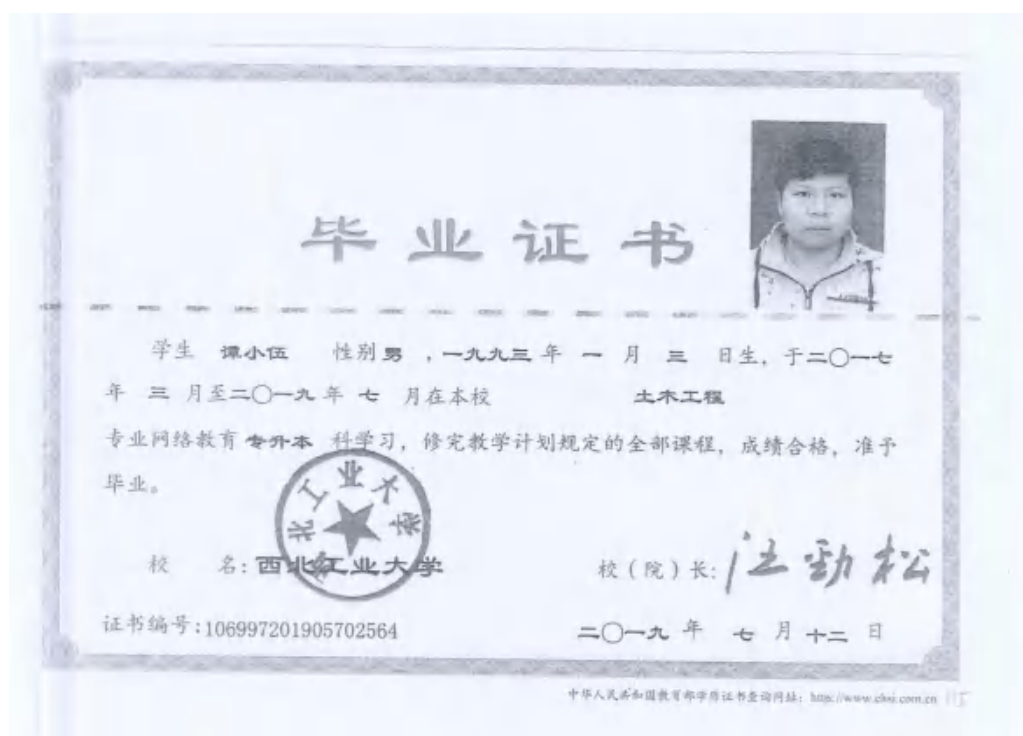 毕业证书
学生 谭小伍 性别 男 ，一九九三 年 一 月 三 日生，于二〇一七
年 三 月至二〇一九 年 七 月在本校 土木工程
专业网络教育 专升本 科学习，修完教学计划规定的全部课程，成绩合格，准予
毕业。
西北工业大学
校 名：西北工业大学
校（院）长：汪劲松
证书编号：106997201905702564
二〇一九 年 七 月 十二 日
中华人民共和国教育部学历证书查询网址：http://www.chsi.com.cn